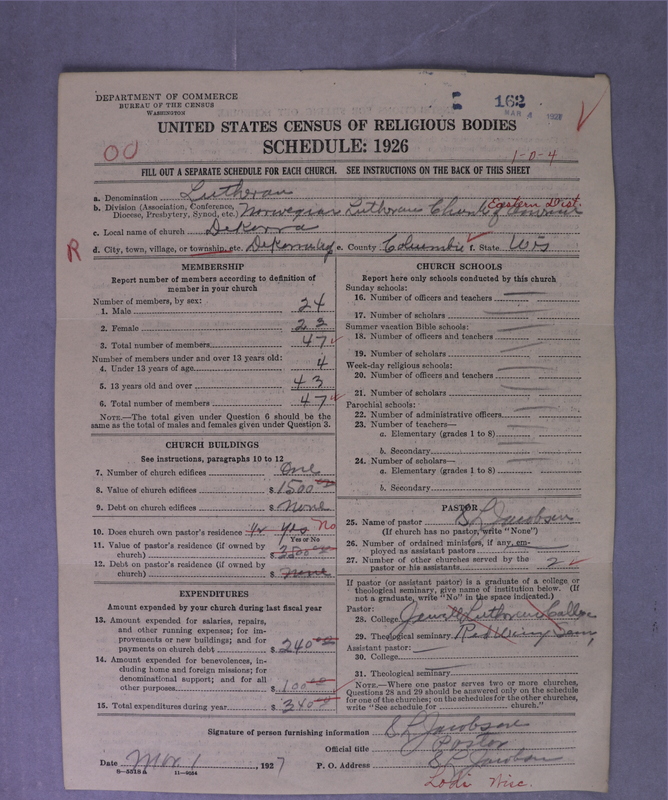 DEPARTMENT OF COMMERCE
BUREAU OF THE CENSUS
WASHINGTON
162
MAR 4 1927
UNITED STATES CENSUS OF RELIGIOUS BODIES
SCHEDULE: 1926
1-0-4
FILL OUT A SEPARATE SCHEDULE FOR EACH CHURCH. SEE INSTRUCTIONS ON THE BACK OF THIS SHEET
a. Denomination Lutheran
b. Division (Association, Conference, Diocese, Presbytery, Synod, etc.) Norwegian Lutheran Church of America Eastern Dist.
c. Local name of church Dekorra
R
d. City, town, village, or township, etc. Dekorra e. County Columbia f. State Wis
MEMBERSHIP
Report number of members according to definition of
member in your church
Number of members, by sex:
1. Male 24
2. Female 23
3. Total number of members 47
Number of members under and over 13 years old:
4. Under 13 years of age 4
5. 13 years old and over 43
6. Total number of members 47
NOTE.—The total given under Question 6 should be the
same as the total of males and females given under Question 3.
CHURCH BUILDINGS
See instructions, paragraphs 10 to 12
7. Number of church edifices One
8. Value of church edifices $1500
9. Debt on church edifices $ None
10. Does church own pastor's residence yes No
Yes or No
11. Value of pastor's residence (if owned by
church) $
12. Debt on pastor's residence (if owned by
church) $ None
EXPENDITURES
Amount expended by your church during last fiscal year
13. Amount expended for salaries, repairs,
and other running expenses; for im-
provements or new buildings; and for
payments on church debt $ 240
14. Amount expended for benevolences, in-
cluding home and foreign missions; for
denominational support; and for all
other purposes $ 100
15. Total expenditures during year $ 340
CHURCH SCHOOLS
Report here only schools conducted by this church
Sunday schools:
16. Number of officers and teachers
17. Number of scholars
Summer vacation Bible schools:
18. Number of officers and teachers
19. Number of scholars
Week-day religious schools:
20. Number of officers and teachers
21. Number of scholars
Parochial schools:
22. Number of administrative officers
23. Number of teachers—
a. Elementary (grades 1 to 8)
b. Secondary
24. Number of scholars—
a. Elementary (grades 1 to 8)
b. Secondary
PASTOR
25. Name of pastor S L Jacobson
(If church has no pastor, write "None")
26. Number of ordained ministers, if any, em-
ployed as assistant pastors
27. Number of other churches served by the
pastor or his assistants 2
If pastor (or assistant pastor) is a graduate of a college or
theological seminary, give name of institution below. (If
not a graduate, write "No" in the space indicated.)
Pastor:
28. College Lutheran College
29. Theological seminary Red Wing Sem,
Assistant pastor:
30. College
31. Theological seminary
NOTE.—Where one pastor serves two or more churches,
Questions 28 and 29 should be answered only on the schedule
for one of the churches; on the schedules for the other churches,
write "See schedule for church."
Signature of person furnishing information S L Jacobson
Official title Pastor
Date Mar. 1, 1927 P. O. Address S L Jacobson
8-5518a 11-9034
Lodi Wisc.